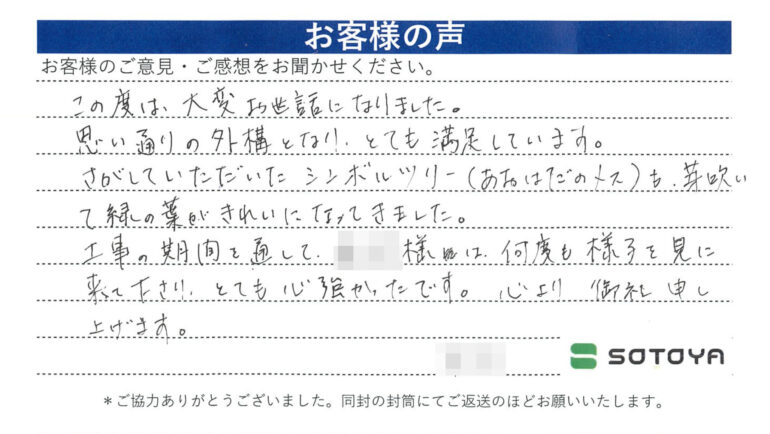 お客様の声
お客様のご意見・ご感想をお聞かせください。
この度は、大変お世話になりました。
思い通りの外構となり、とても満足しています。
さがしていただいた シンボルツリー(あおはだのメス)も、芽吹い
て緑の葉がきれいになってきました。
工事の期間を通して、様には、何度も様子を見に
来て下さり、とても心強かったです。心より御礼申し
上げます。
SOTOYA
*ご協力ありがとうございました。同封の封筒にてご返送のほどお願いいたします。